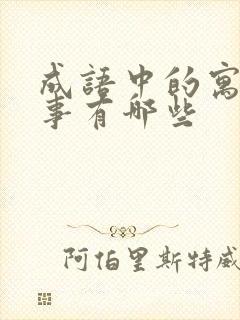 成語中的寓
事有哪些
阿伯里斯特威